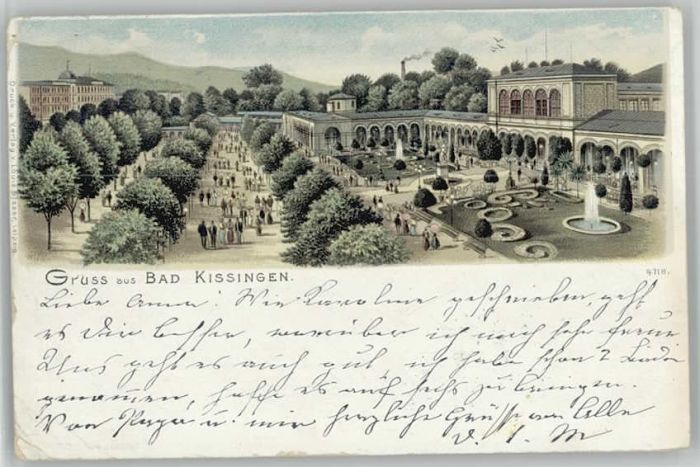 Gruss aus Bad Kissingen.
4711.
Liebe Anna! Wie Karoline geschrieben, geht
es Dir besser, worüber ich mich sehr freue
Uns geht es auch gut, ich habe schon 2 Bäder
genommen, hoffe es auf sechs zu bringen.
Von Papa u. mir herzliche Grüsse an Alle
D. l. M